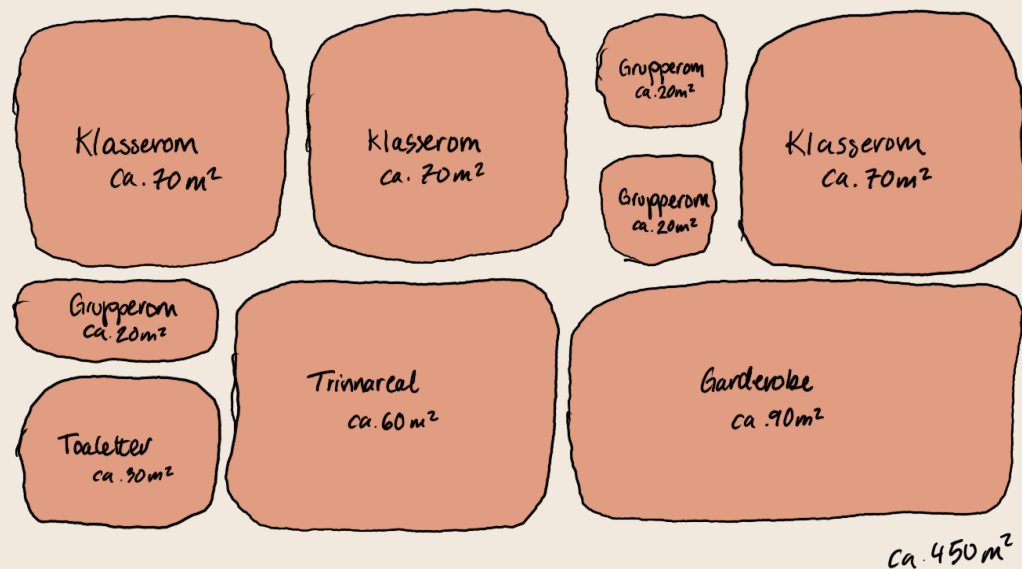 Klasserom
ca. 70 m²
Klasserom
ca. 70 m²
Grupperom
ca. 20 m²
Grupperom
ca. 20 m²
Klasserom
ca. 70 m²
Grupperom
ca. 20 m²
Toaletter
ca. 30 m²
Trinnareal
ca. 60 m²
Garderobe
ca. 90 m²
ca. 450 m²